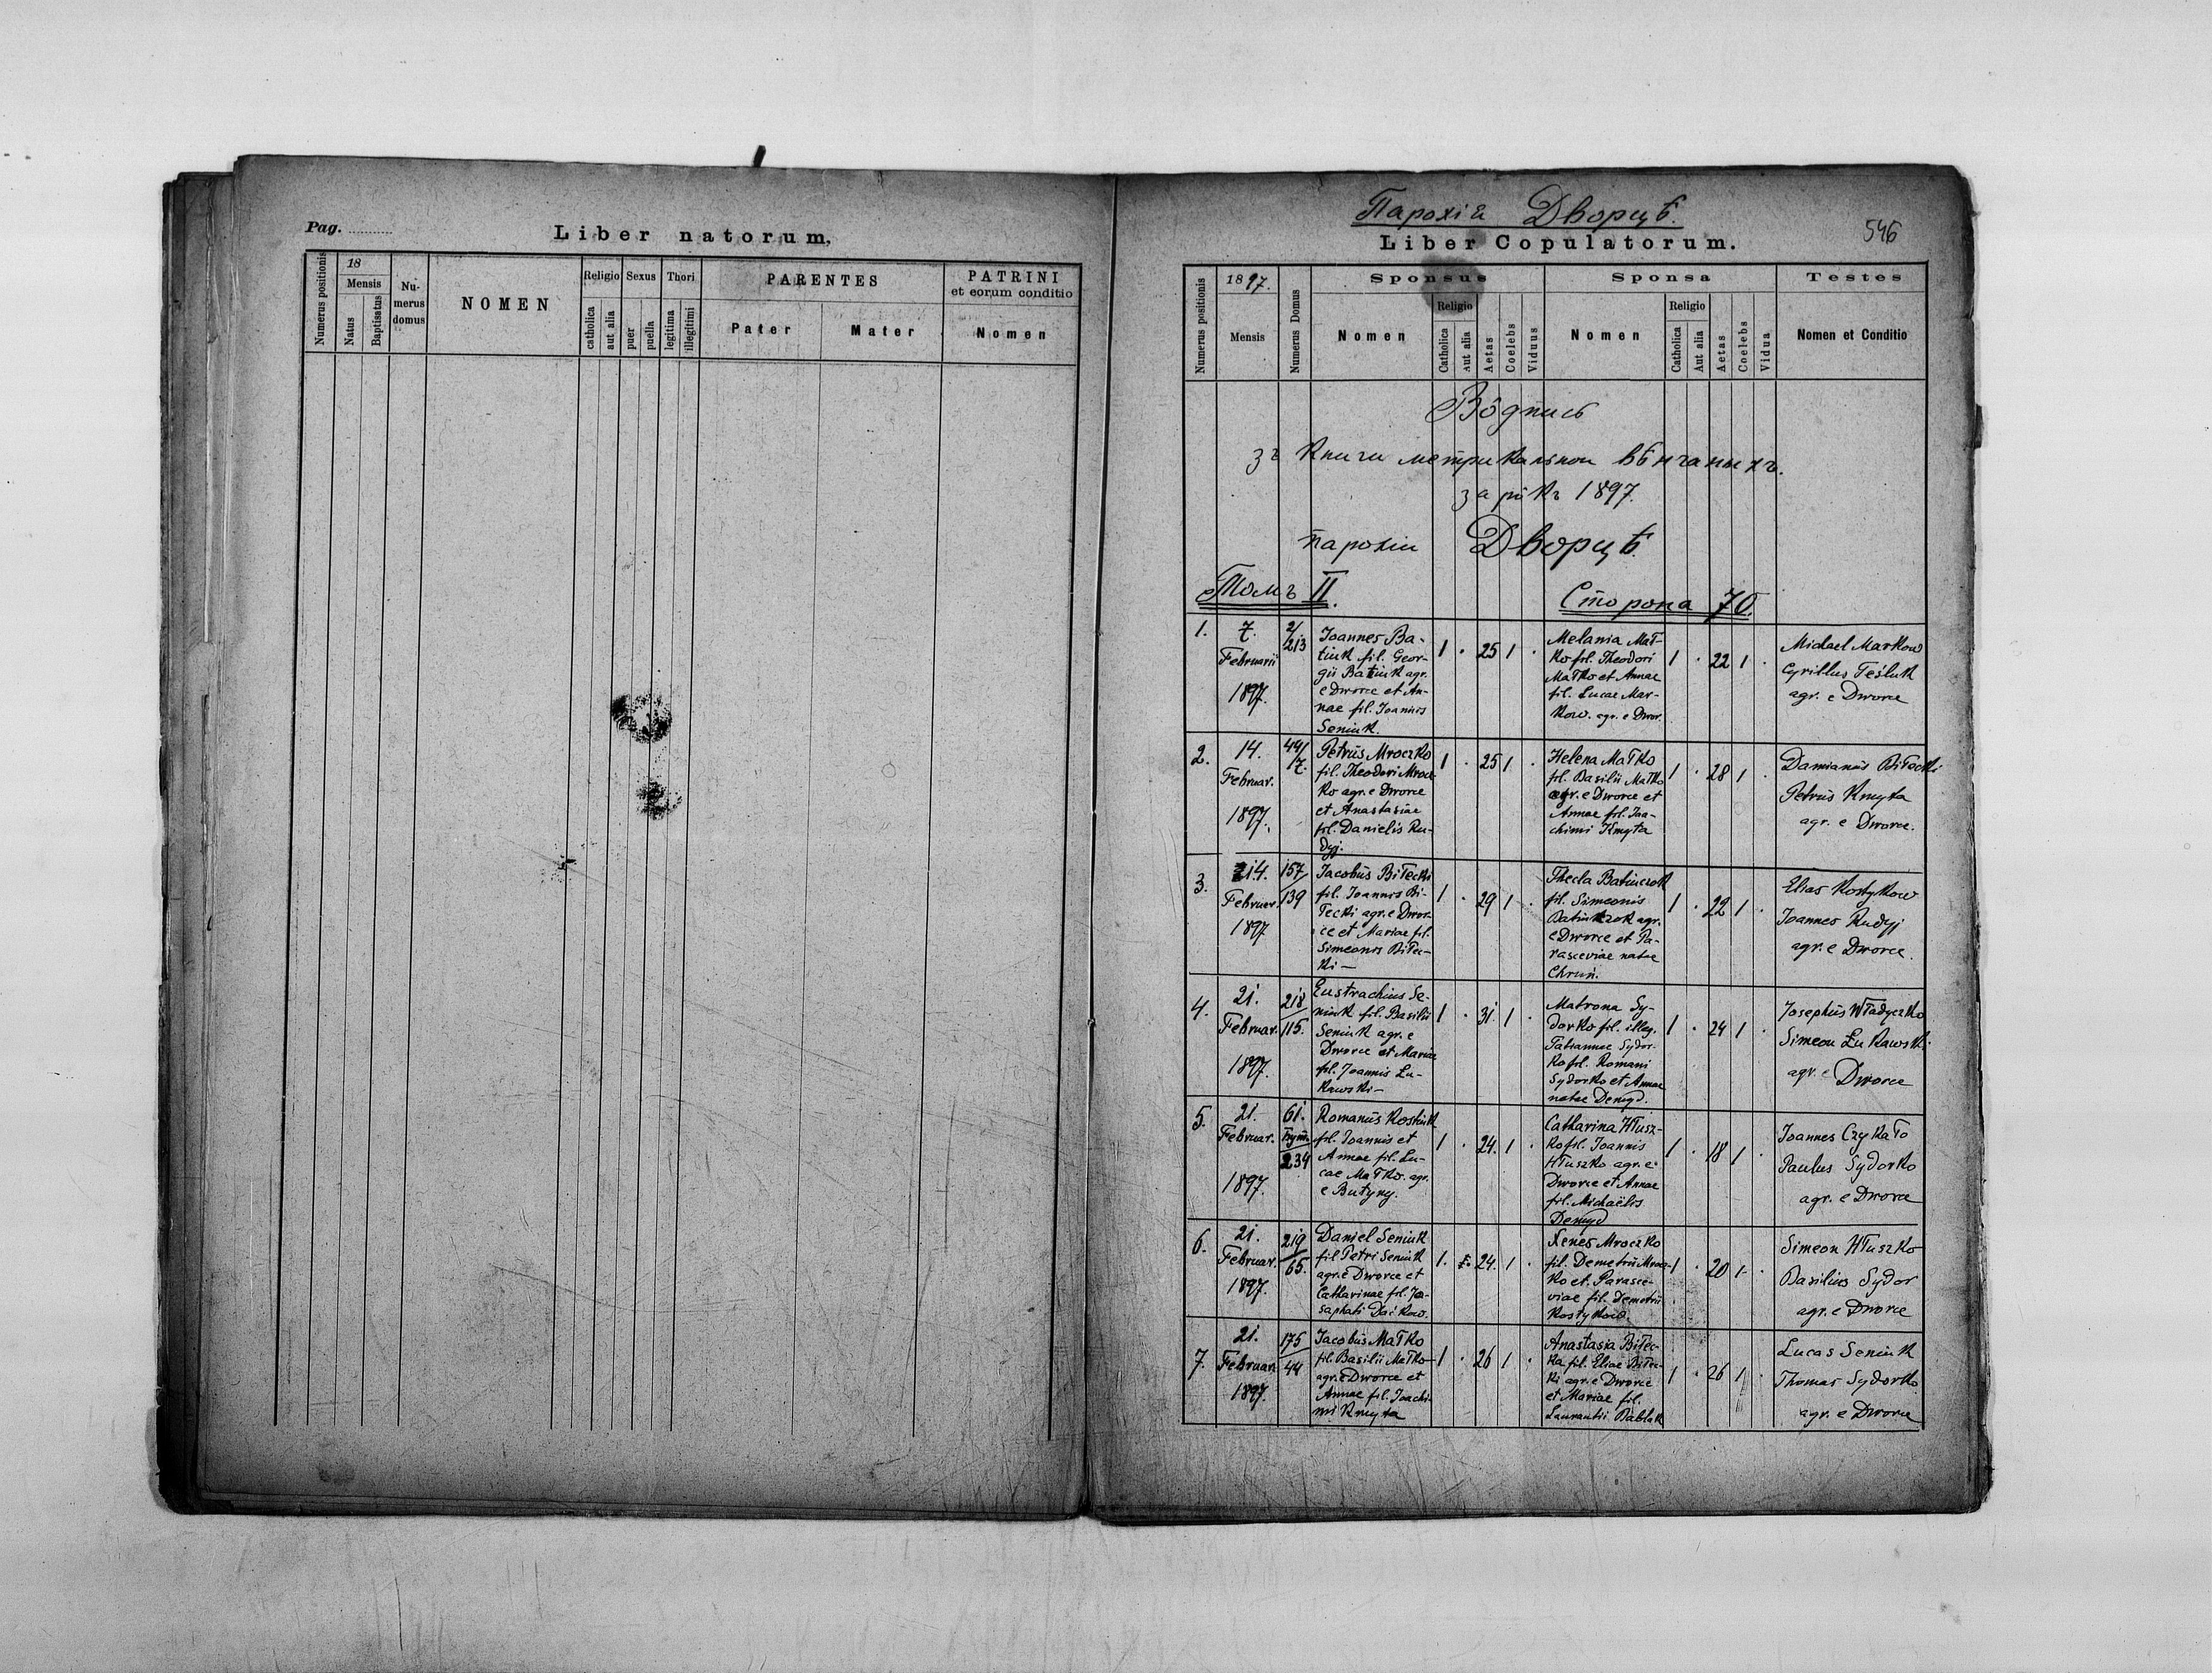 Pag.
Liber natorum,
Numerus positionis
18
Mensis
Natus
Baptisatus
Nu-
merus
domus
NOMEN
Religio
catholica
aut alia
Sexus
puer
puella
Thori
legitima
illegitimi
PARENTES
Pater
Mater
PATRINI
et eorum conditio
Nomen
Парохія Дворцѣ.
546
Liber Copulatorum.
Numerus positionis
1897.
Mensis
Numerus Domus
Sponsus
Nomen
Religio
Catholica
Aut alia
Aetas
Coelebs
Viduus
Sponsa
Nomen
Religio
Catholica
Aut alia
Aetas
Coelebs
Vidua
Testes
Nomen et Conditio
Вôдпись
зъ книги метрикальнои вѣнчаныхъ.
за рôкъ 1897.
парохіи Дворцѣ.
Томъ II.
Сторона 70.
1.
7.
Februarii
1897.
2/
213
Joannes Ba-
tiuk fil. Geor-
gii Batiuk agr.
e Dworce et An-
nae fil. Joannis
Seniuk.
1 . 25 1 .
Melania Mał-
ko fil. Theodori
Małko et Annae
fil. Lucae Mar-
kow. agr. e Dwor.
1 . 22 1 .
Michael Markow
Cyrillus Teśluk
agr. e Dworce
2.
14.
Februar.
1897.
44/
17.
Petrus Mroczko
fil. Theodori Mrocz-
ko agr. e Dworce
et Anastasiae
fil. Danielis Ru-
dyj.
1 . 25 1 .
Helena Małko
fil. Basilii Małko
agr. e Dworce et
Annae fil. Joa-
chimi Kmyta
1 . 28 1 .
Damianus Biłecki
Petrus Kmyta
agr. e Dworce.
3.
14.
Februar.
1897
157/
139
Jacobus Biłecki
fil. Joannis Bi-
łecki agr. e Dwor-
ce et Mariae fil.
Simeonis Biłec-
ki —
1 . 29 1 .
Thecla Batiuczok
fil. Simeonis
Batiuczok agr.
e Dworce et Pa-
rasceviae natae
Chruń.
1 . 22 1 .
Elias Kostykow
Joannes Rudyj
agr. e Dworce.
4.
21.
Februar.
1897.
218/
115.
Eustrachius Se-
niuk fil. Basilii
Seniuk agr. e
Dworce et Mariae
fil. Joannis Łu-
kawski —
1 . 31. 1 .
Matrona Sy-
dorko fil. illeg.
Tatiannae Sydor-
ko fil. Romani
Sydorko et Annae
natae Demyd.
1 . 24 1 .
Josephus Władyczko
Simeon Łukawski
agr. e Dworce
5.
21.
Februar.
1897.
61.
234
Romanus Kostiuk
fil. Joannis et
Annae fil. Lu-
cae Małko. agr.
e Butyny.
1 . 24. 1 .
Catharina Hłusz-
ko fil. Joannis
Hłuszko agr. e
Dworce et Annae
fil. Michaëlis
Demyd
1 . 18 1 .
Joannes Czykało
Paulus Sydorko
agr. e Dworce
6.
21.
Februar.
1897.
219
65.
Daniel Seniuk
fil Petri Seniuk
agr. e Dworce et
Catharinae fil. Jo-
saphati Dackow.
1. 24. 1 .
Xenes Mroczko
fil. Demetrii Mrocz-
ko et. Parasce-
viae fil. Demetrii
Kostykow.
1 . 20 1 .
Simeon Hłuszko
Basilius Sydor
agr. e Dworce
7.
21.
Februar.
1897.
175
44
Jacobus Małko
fil. Basilii Małko
agr. e Dworce et
Annae fil. Joachi-
mi Kmyta
1 . 26 1 .
Anastasia Biłec-
ka fil. Eliae Biłec-
ki agr. e Dworce
et Mariae fil.
Laurentii Bablak
1 . 26 1 .
Lucas Seniuk
Thomas Sydorko
agr. e Dworce